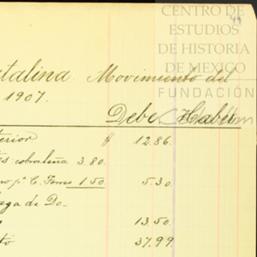 CENTRO DE
ESTUDIOS
DE HISTORIA
DE MEXICO
FUNDACIÓN
talina Movimiento del
1907.
Debe Haber
terior $ 12.86.
cobraleña 3.80.
p.ª C. 1.50. 5.30.
ga de Do.
13.50
to 37.99